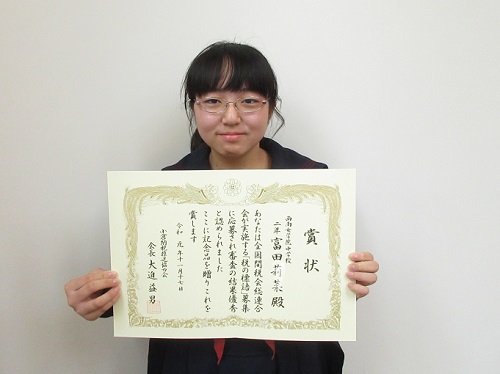 賞状
西南女学院中学校
二年 富田莉菜殿
あなたは全国間税会総連合
会が実施する「税の標語」募集
に応募され審査の結果優秀
と認められました
ここに記念品を贈りこれを
賞します
令和元年十一月十七日
会長 大迫益男